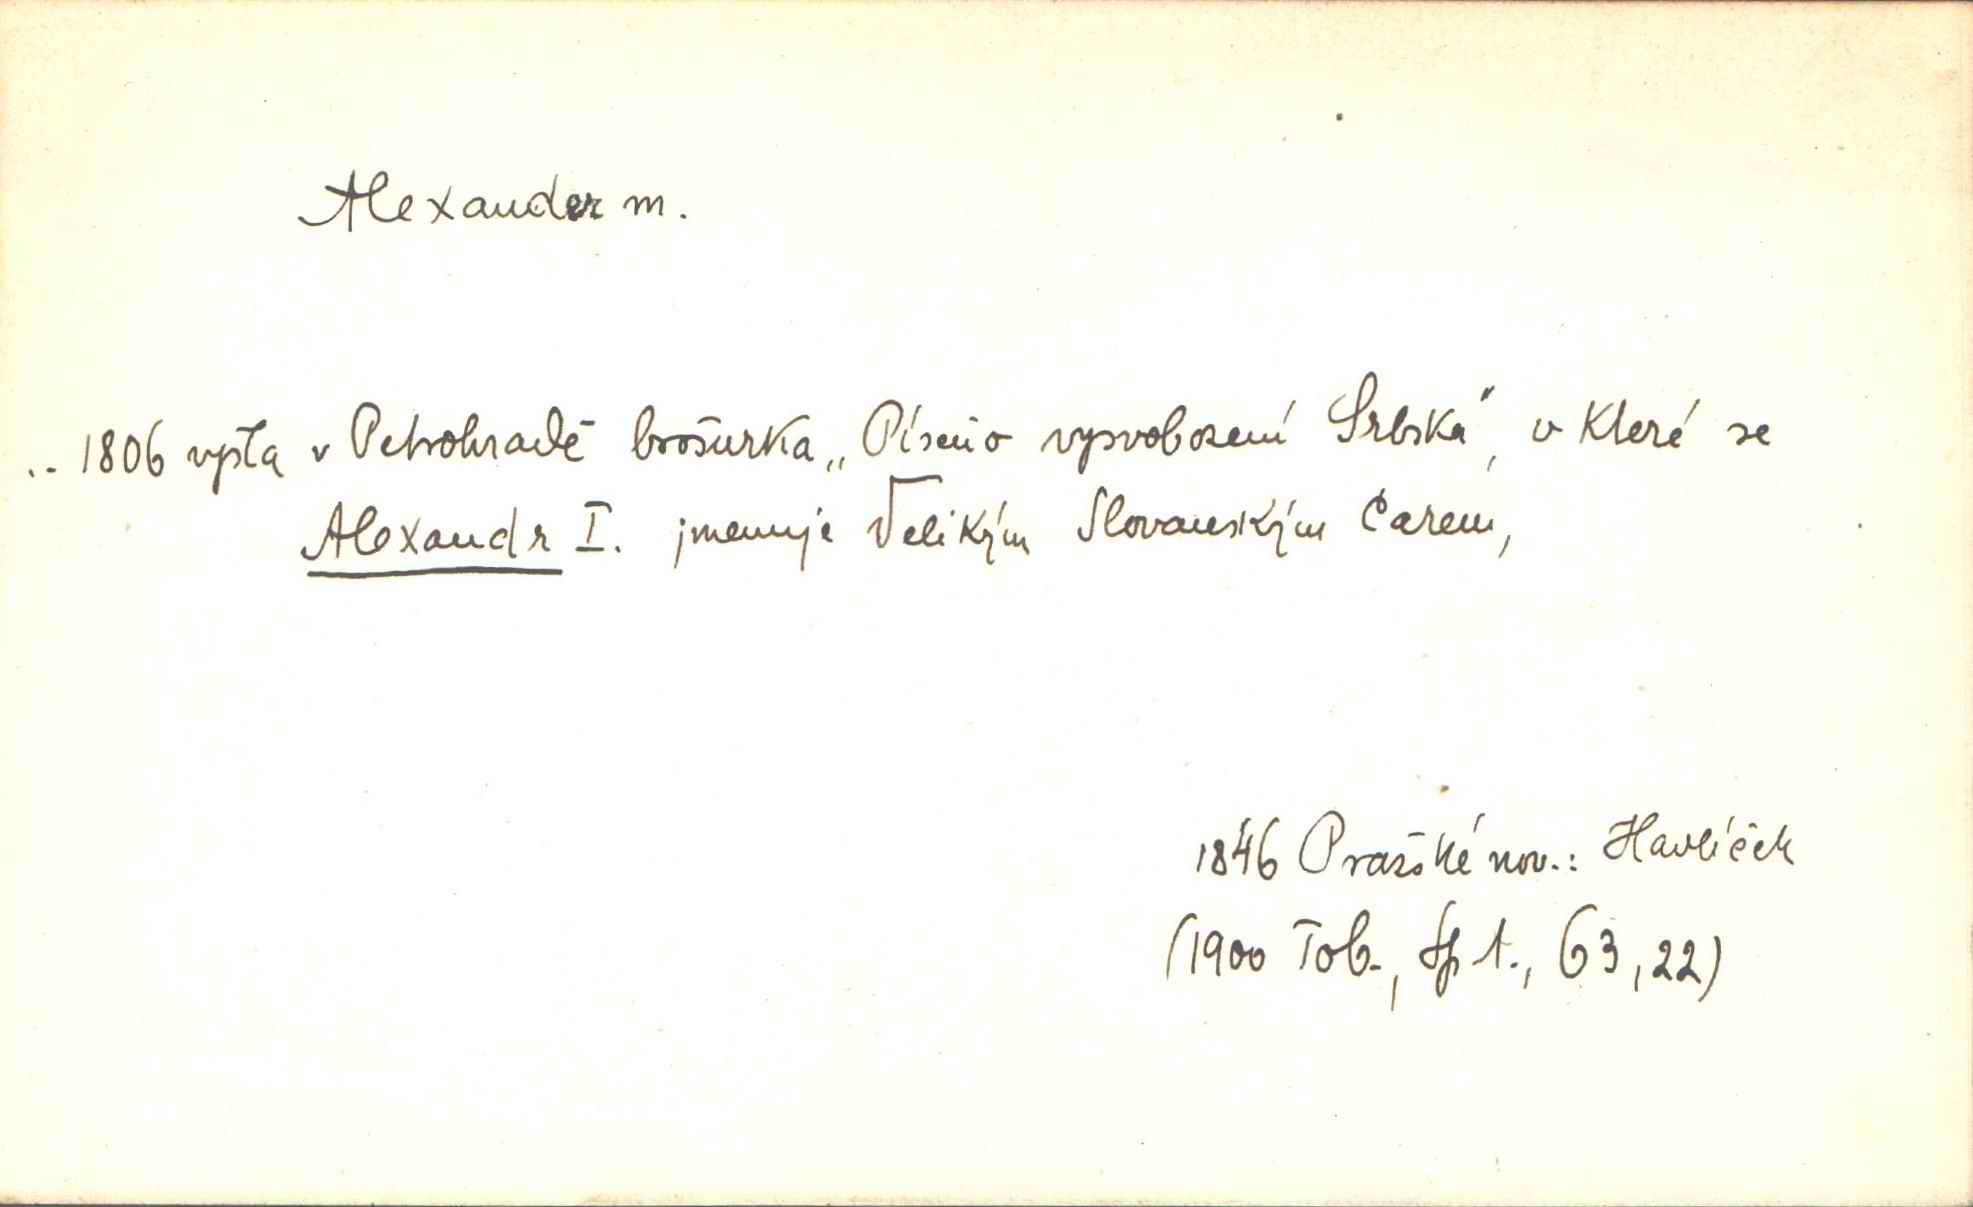 Alexander m.
.. 1806 vyšla v Petrohradě brošurka „Píseň o vysvobození Srbska", v které se
Alexandr I. jmenuje Velikým Slovanským Carem,
1846 Pražské nov.: Havlíček
(1900 Tob., Sp 1., 63,22)